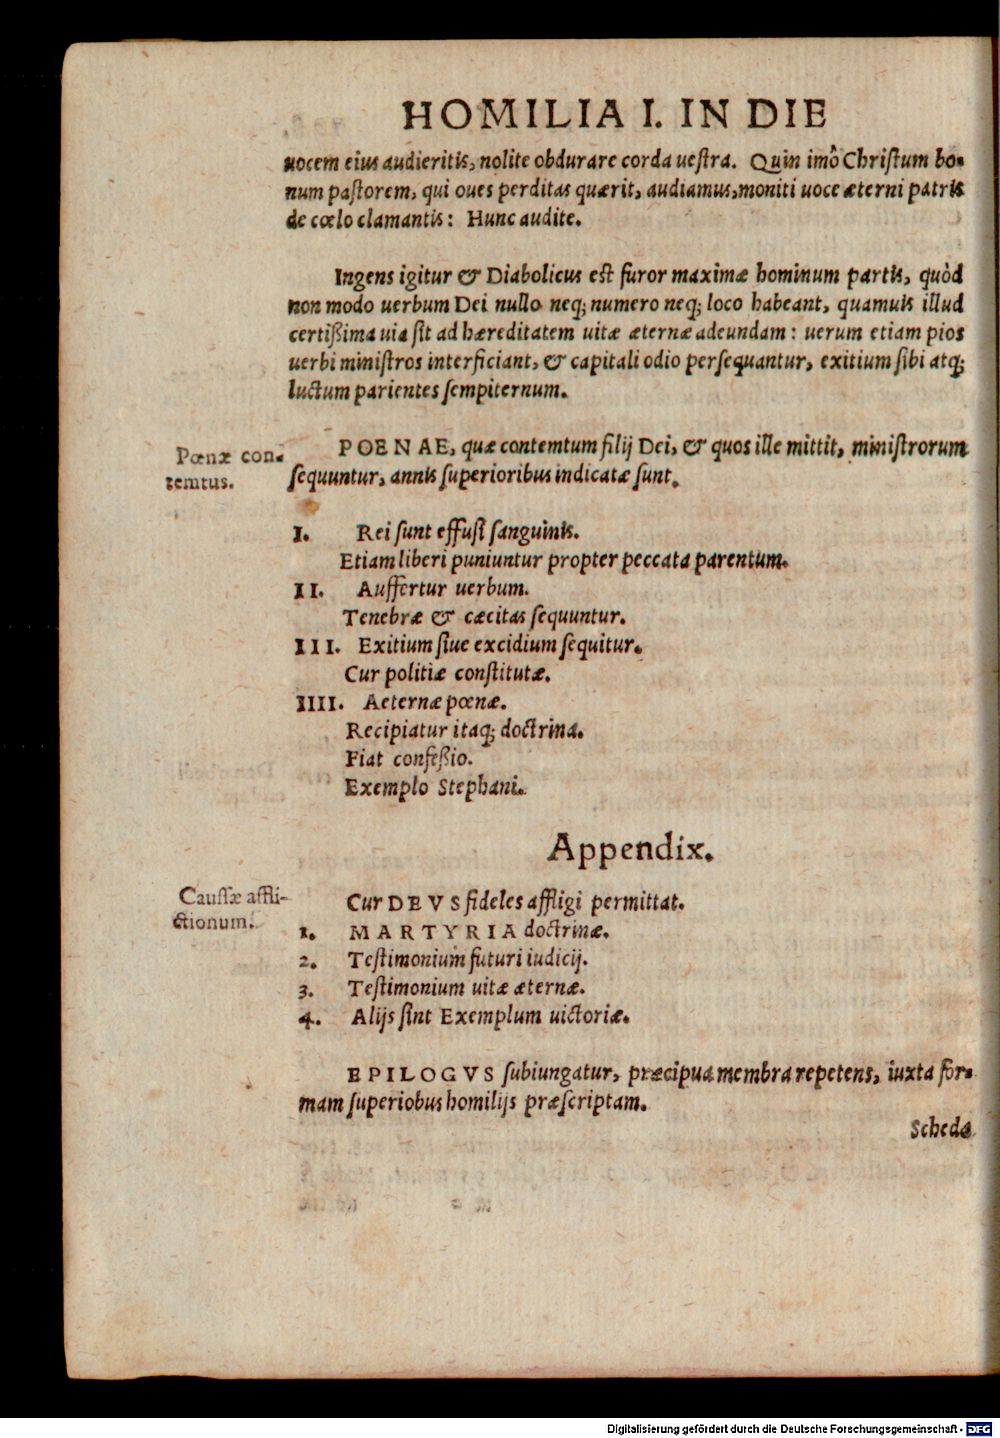 HOMILIA I. IN DIE
uocem eius audieritis, nolite obdurare corda uestra. Quin imò Christum bo-
num pastorem, qui oues perditas quærit, audiamus, moniti uoce æterni patris
de cœlo clamantis: Hunc audite.
Ingens igitur & Diabolicus est furor maximæ hominum partis, quòd
non modo uerbum Dei nullo neq; numero neq; loco habeant, quamuis illud
certißima uia sit ad hæreditatem uitæ æternæ adeundam: uerum etiam pios
uerbi ministros interficiant, & capitali odio persequantur, exitium sibi atq;
luctum parientes sempiternum.
Pœnæ con-
temtus.
POENAE, quæ contemtum filij Dei, & quos ille mittit, ministrorum
sequuntur, annis superioribus indicatæ sunt.
I. Rei sunt effusi sanguinis.
Etiam liberi puniuntur propter peccata parentum.
II. Auffertur uerbum.
Tenebræ & cæcitas sequuntur.
III. Exitium siue excidium sequitur.
Cur politiæ constitutæ.
IIII. Aeternæ pœnæ.
Recipiatur itaq; doctrina.
Fiat confeßio.
Exemplo Stephani.
Appendix.
Caussæ affli-
ctionum.
Cur DEVS fideles affligi permittat.
1. MARTYRIA doctrinæ.
2. Testimonium futuri iudicij.
3. Testimonium uitæ æternæ.
4. Alijs sint Exemplum uictoriæ.
EPILOGVS subiungatur, præcipua membra repetens, iuxta for-
mam superiobus homilijs præscriptam.
Scheda
Digitalisierung gefördert durch die Deutsche Forschungsgemeinschaft - DFG